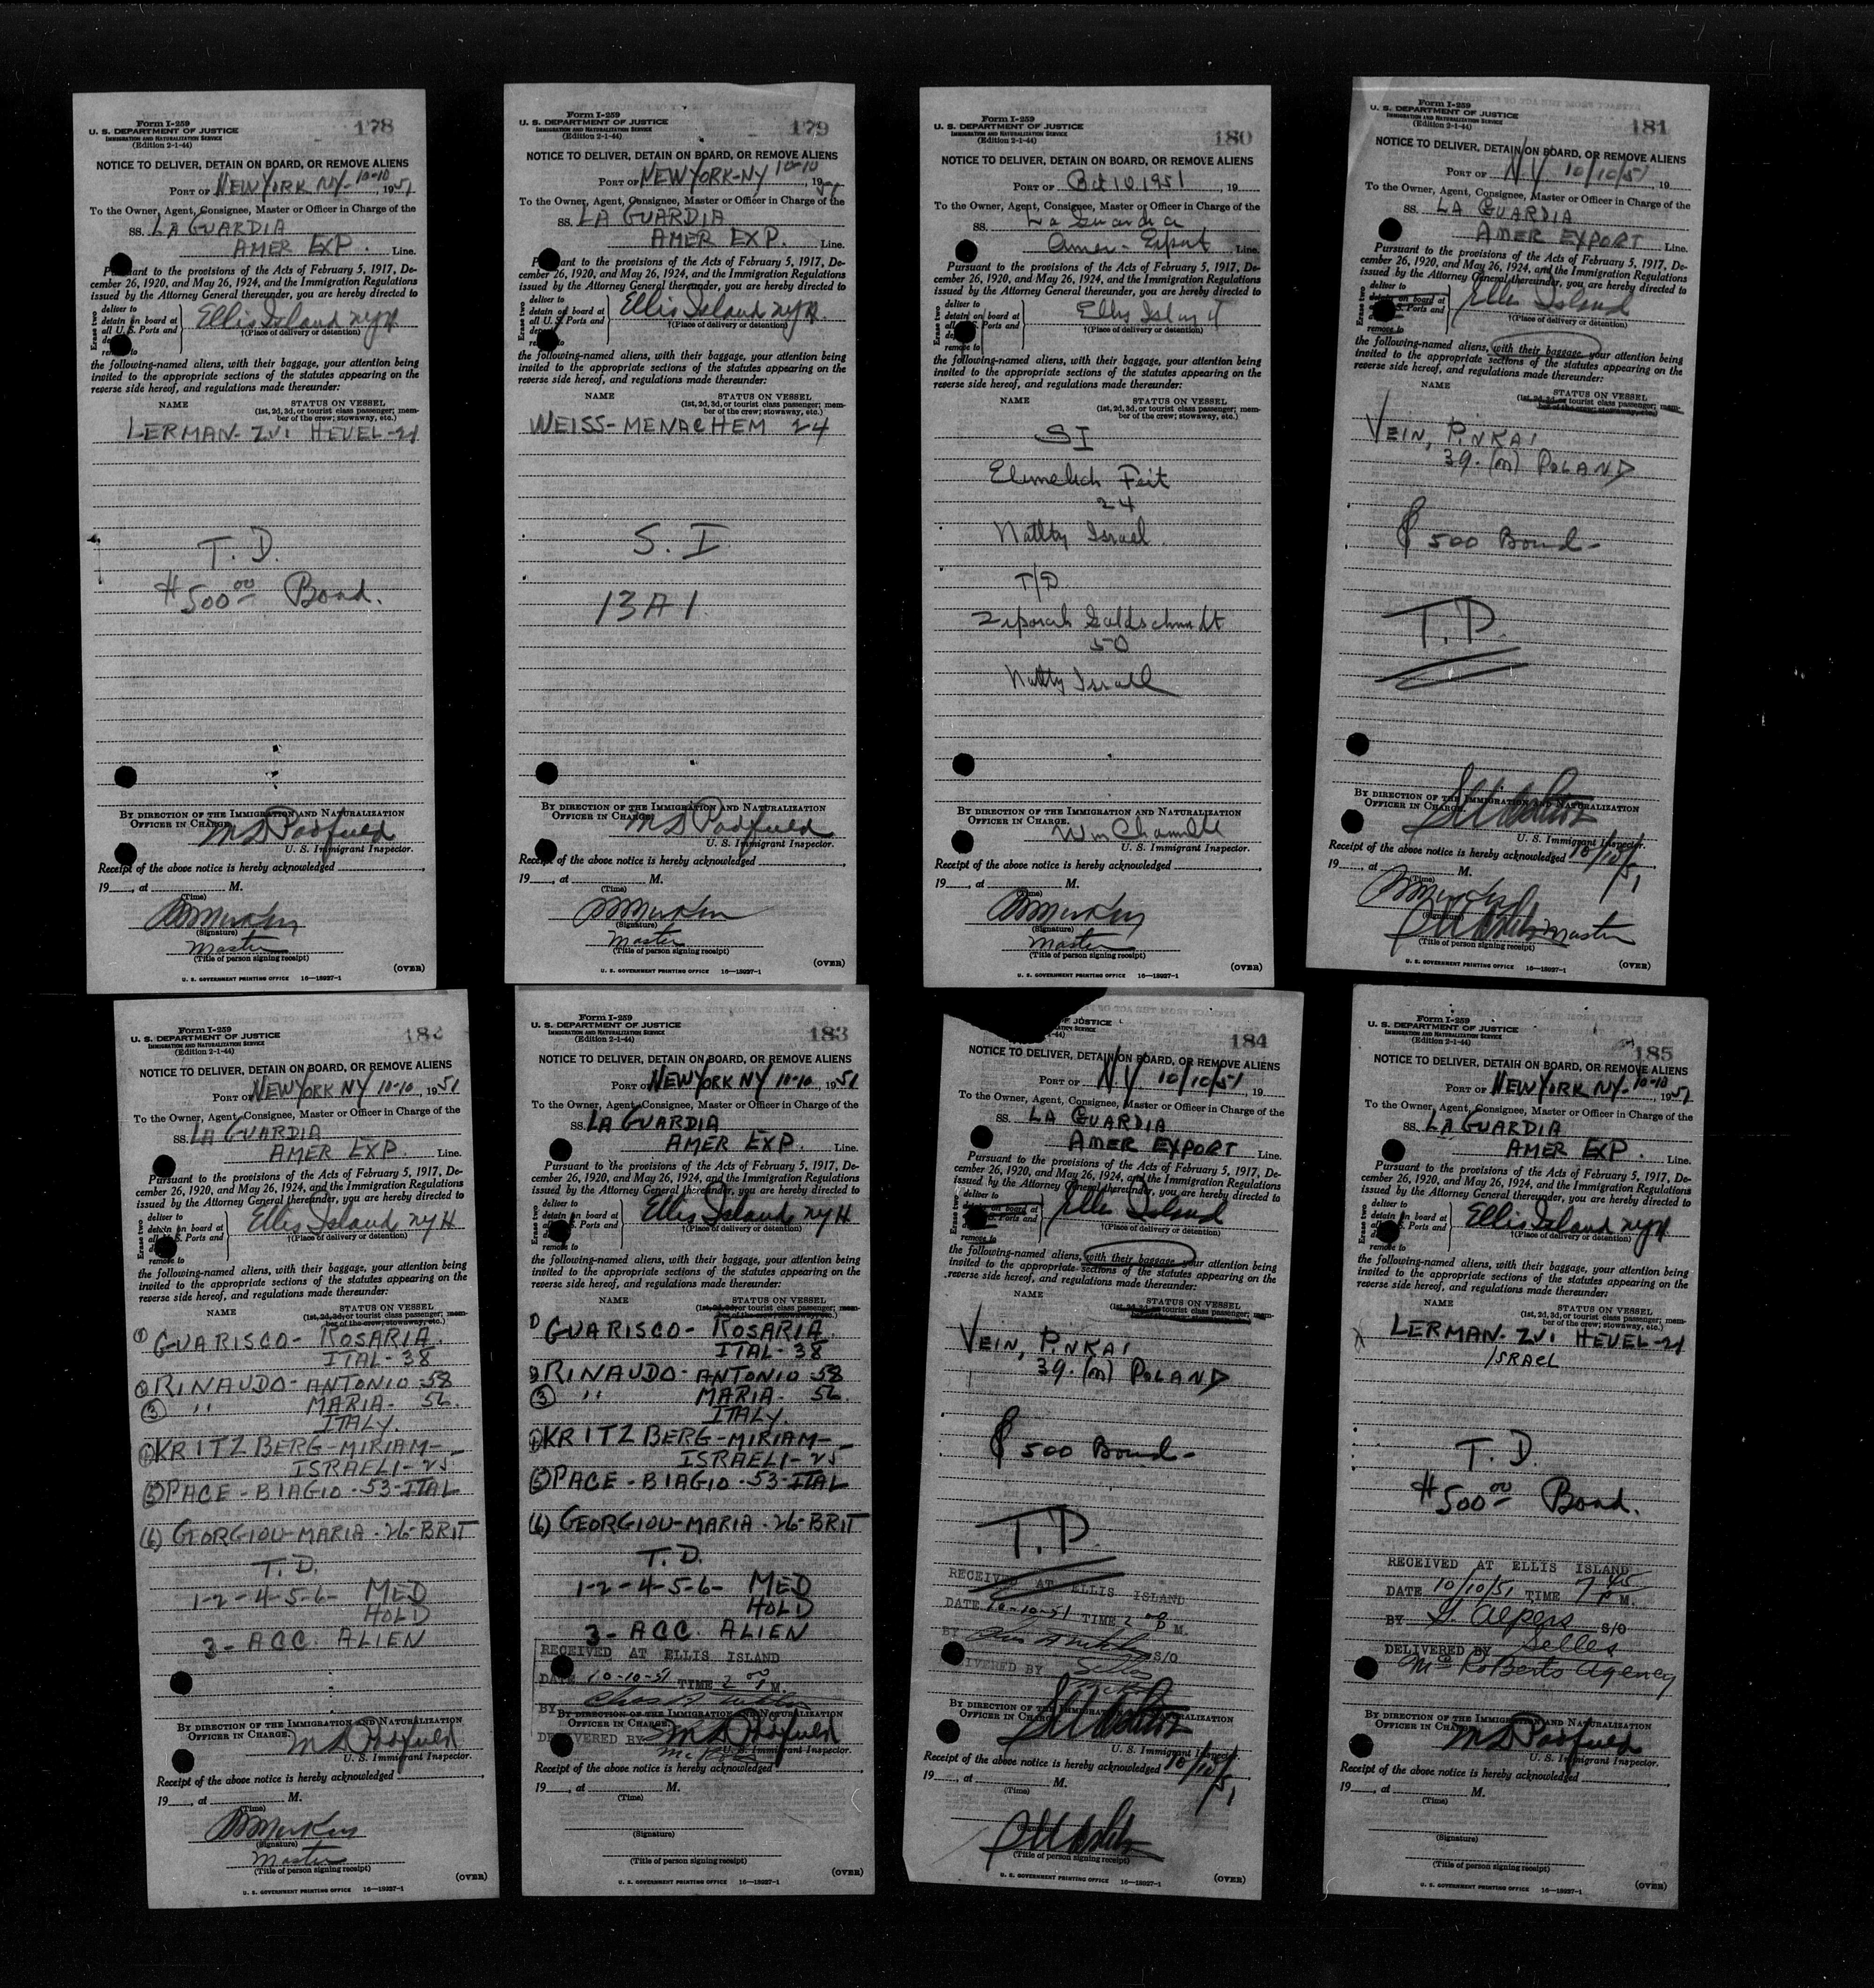 Form I-259
U. S. DEPARTMENT OF JUSTICE
IMMIGRATION AND NATURALIZATION SERVICE
(Edition 2-1-44)
178
NOTICE TO DELIVER, DETAIN ON BOARD, OR REMOVE ALIENS
PORT OF NEW YORK NY- 10-10, 1951
To the Owner, Agent, Consignee, Master or Officer in Charge of the
SS. LA GUARDIA
AMER EXP.
Pursuant to the provisions of the Acts of February 5, 1917, De-
cember 26, 1920, and May 26, 1924, and the Immigration Regulations
issued by the Attorney General thereunder, you are hereby directed to
Erase two
deliver to
detain on board at
all U. S. Ports and
remove to
Ellis Island NYH
†(Place of delivery or detention)
the following-named aliens, with their baggage, your attention being
invited to the appropriate sections of the statutes appearing on the
reverse side hereof, and regulations made thereunder:
NAME STATUS ON VESSEL
(1st, 2d, 3d, or tourist class passenger; mem-
ber of the crew; stowaway, etc.)
LERMAN- ZVI HEVEL-21
T. D.
$500.00 Bond.
BY DIRECTION OF THE IMMIGRATION AND NATURALIZATION
OFFICER IN CHARGE.
M D Padfield
U. S. Immigrant Inspector.
Receipt of the above notice is hereby acknowledged
19__, at ____ M.
(Time)
(Signature)
Master
(Title of person signing receipt)
(OVER)
U. S. GOVERNMENT PRINTING OFFICE 16—18927-1
Form I-259
U. S. DEPARTMENT OF JUSTICE
IMMIGRATION AND NATURALIZATION SERVICE
(Edition 2-1-44)
179
NOTICE TO DELIVER, DETAIN ON BOARD, OR REMOVE ALIENS
PORT OF NEW YORK-NY 10-10, 1951
To the Owner, Agent, Consignee, Master or Officer in Charge of the
SS. LA GUARDIA
AMER EXP. Line.
Pursuant to the provisions of the Acts of February 5, 1917, De-
cember 26, 1920, and May 26, 1924, and the Immigration Regulations
issued by the Attorney General thereunder, you are hereby directed to
Erase two
deliver to
detain on board at
all U. S. Ports and
remove to
Ellis Island NYH
†(Place of delivery or detention)
the following-named aliens, with their baggage, your attention being
invited to the appropriate sections of the statutes appearing on the
reverse side hereof, and regulations made thereunder:
NAME STATUS ON VESSEL
(1st, 2d, 3d, or tourist class passenger; mem-
ber of the crew; stowaway, etc.)
WEISS- MENACHEM 24
S. I
13A1.
BY DIRECTION OF THE IMMIGRATION AND NATURALIZATION
OFFICER IN CHARGE.
M D Padfield
U. S. Immigrant Inspector.
Receipt of the above notice is hereby acknowledged
19__, at ____ M.
(Time)
(Signature)
Master
(Title of person signing receipt)
(OVER)
U. S. GOVERNMENT PRINTING OFFICE 16—18927-1
Form I-259
U. S. DEPARTMENT OF JUSTICE
IMMIGRATION AND NATURALIZATION SERVICE
(Edition 2-1-44)
180
NOTICE TO DELIVER, DETAIN ON BOARD, OR REMOVE ALIENS
PORT OF Oct 10, 1951, 19
To the Owner, Agent, Consignee, Master or Officer in Charge of the
SS. La Guardia
Amer- Export Line.
Pursuant to the provisions of the Acts of February 5, 1917, De-
cember 26, 1920, and May 26, 1924, and the Immigration Regulations
issued by the Attorney General thereunder, you are hereby directed to
Erase two
deliver to
detain on board at
all U. S. Ports and
remove to
Ellis Island
†(Place of delivery or detention)
the following-named aliens, with their baggage, your attention being
invited to the appropriate sections of the statutes appearing on the
reverse side hereof, and regulations made thereunder:
NAME STATUS ON VESSEL
(1st, 2d, 3d, or tourist class passenger; mem-
ber of the crew; stowaway, etc.)
SI
Elimelech Feit
24
Natlty Israel
T/D
Ziporah Goldschmidt
50
Natlty Israel
BY DIRECTION OF THE IMMIGRATION AND NATURALIZATION
OFFICER IN CHARGE.
U. S. Immigrant Inspector.
Receipt of the above notice is hereby acknowledged
19__, at ____ M.
(Time)
(Signature)
Master
(Title of person signing receipt)
(OVER)
U. S. GOVERNMENT PRINTING OFFICE 16—18927-1
Form I-259
U. S. DEPARTMENT OF JUSTICE
IMMIGRATION AND NATURALIZATION SERVICE
(Edition 2-1-44)
181
NOTICE TO DELIVER, DETAIN ON BOARD, OR REMOVE ALIENS
PORT OF N.Y 10/10/51, 19
To the Owner, Agent, Consignee, Master or Officer in Charge of the
SS. LA GUARDIA
AMER EXPORT Line.
Pursuant to the provisions of the Acts of February 5, 1917, De-
cember 26, 1920, and May 26, 1924, and the Immigration Regulations
issued by the Attorney General thereunder, you are hereby directed to
deliver to
detain on board at
U. S. Ports and
remove to
Ellis Island
†(Place of delivery or detention)
the following-named aliens, with their baggage, your attention being
invited to the appropriate sections of the statutes appearing on the
reverse side hereof, and regulations made thereunder:
NAME
STATUS ON VESSEL
(1st, 2d, 3d, or tourist class passenger; mem-
ber of the crew; stowaway, etc.)
VEIN, PINKAI
39. (m) POLAND
$500 Bond-
T.D.
BY DIRECTION OF THE IMMIGRATION AND NATURALIZATION
OFFICER IN CHARGE.
U. S. Immigrant Inspector.
Receipt of the above notice is hereby acknowledged 10/10/51
19__, at ____ M.
(Time)
(Signature)
Master
(Title of person signing receipt)
(OVER)
U. S. GOVERNMENT PRINTING OFFICE 16—18927-1
Form I-259
U. S. DEPARTMENT OF JUSTICE
IMMIGRATION AND NATURALIZATION SERVICE
(Edition 2-1-44)
182
NOTICE TO DELIVER, DETAIN ON BOARD, OR REMOVE ALIENS
PORT OF NEW YORK NY 10-10, 1951
To the Owner, Agent, Consignee, Master or Officer in Charge of the
SS. LA GUARDIA
AMER EXP. Line.
Pursuant to the provisions of the Acts of February 5, 1917, De-
cember 26, 1920, and May 26, 1924, and the Immigration Regulations
issued by the Attorney General thereunder, you are hereby directed to
Erase two
deliver to
detain on board at
all U. S. Ports and
remove to
Ellis Island NYH
†(Place of delivery or detention)
the following-named aliens, with their baggage, your attention being
invited to the appropriate sections of the statutes appearing on the
reverse side hereof, and regulations made thereunder:
NAME STATUS ON VESSEL
(1st, 2d, 3d, or tourist class passenger; mem-
ber of the crew; stowaway, etc.)
(1) GUARISCO- ROSARIA.
ITAL- 38
(2) RINAUDO- ANTONIO 58
(3) " MARIA- 56.
ITALY.
(4) KRITZBERG-MIRIAM-
ISRAELI- 25
(5) PACE - BIAGIO - 53-ITAL
(6) GEORGIOU-MARIA - 26-BRIT
T. D.
1-2-4-5-6- MED
HOLD
3- ACC. ALIEN
BY DIRECTION OF THE IMMIGRATION AND NATURALIZATION
OFFICER IN CHARGE.
M D Padfield
U. S. Immigrant Inspector.
Receipt of the above notice is hereby acknowledged
19__, at ____ M.
(Time)
(Signature)
Master
(Title of person signing receipt)
(OVER)
U. S. GOVERNMENT PRINTING OFFICE 16—18927-1
Form I-259
U. S. DEPARTMENT OF JUSTICE
IMMIGRATION AND NATURALIZATION SERVICE
(Edition 2-1-44)
183
NOTICE TO DELIVER, DETAIN ON BOARD, OR REMOVE ALIENS
PORT OF NEW YORK NY 10-10, 1951
To the Owner, Agent, Consignee, Master or Officer in Charge of the
SS. LA GUARDIA
AMER EXP. Line.
Pursuant to the provisions of the Acts of February 5, 1917, De-
cember 26, 1920, and May 26, 1924, and the Immigration Regulations
issued by the Attorney General thereunder, you are hereby directed to
Erase two
deliver to
detain on board at
all U. S. Ports and
remove to
Ellis Island NYH
†(Place of delivery or detention)
the following-named aliens, with their baggage, your attention being
invited to the appropriate sections of the statutes appearing on the
reverse side hereof, and regulations made thereunder:
NAME STATUS ON VESSEL
(1st, 2d, 3d, or tourist class passenger; mem-
ber of the crew; stowaway, etc.)
1) GUARISCO- ROSARIA.
ITAL- 38
2) RINAUDO- ANTONIO 58
(3) " MARIA- 56.
ITALY.
(4) KRITZBERG-MIRIAM-
ISRAELI- 25
(5) PACE - BIAGIO - 53-ITAL
(6) GEORGIOU-MARIA - 26-BRIT
T. D.
1-2-4-5-6- MED
HOLD
3- ACC. ALIEN
RECEIVED AT ELLIS ISLAND
DATE 10-10-51 TIME 2 00 P M.
BY
BY DIRECTION OF THE IMMIGRATION AND NATURALIZATION
OFFICER IN CHARGE.
DELIVERED BY
M D Padfield
U. S. Immigrant Inspector.
Receipt of the above notice is hereby acknowledged
19__, at ____ M.
(Time)
(Signature)
(Title of person signing receipt)
(OVER)
U. S. GOVERNMENT PRINTING OFFICE 16—18927-1
OF JUSTICE
184
NOTICE TO DELIVER, DETAIN ON BOARD, OR REMOVE ALIENS
PORT OF N.Y 10/10/51, 19
To the Owner, Agent, Consignee, Master or Officer in Charge of the
SS. LA GUARDIA
AMER EXPORT Line.
Pursuant to the provisions of the Acts of February 5, 1917, De-
cember 26, 1920, and May 26, 1924, and the Immigration Regulations
issued by the Attorney General thereunder, you are hereby directed to
Erase two
deliver to
detain on board at
U. S. Ports and
remove to
Ellis Island
†(Place of delivery or detention)
the following-named aliens, with their baggage, your attention being
invited to the appropriate sections of the statutes appearing on the
reverse side hereof, and regulations made thereunder:
NAME STATUS ON VESSEL
(1st, 2d, 3d, or tourist class passenger; mem-
ber of the crew; stowaway, etc.)
VEIN, PINKAI
39. (m) POLAND
$500 Bond-
T.D.
RECEIVED AT ELLIS ISLAND
DATE 10-10-51 TIME 2 00 P M.
BY S/O
DELIVERED BY Selles
BY DIRECTION OF THE IMMIGRATION AND NATURALIZATION
OFFICER IN CHARGE.
U. S. Immigrant Inspector.
Receipt of the above notice is hereby acknowledged 10/10/51
19__, at ____ M.
(Time)
(Signature)
(Title of person signing receipt)
(OVER)
U. S. GOVERNMENT PRINTING OFFICE 16—18927-1
Form I-259
U. S. DEPARTMENT OF JUSTICE
IMMIGRATION AND NATURALIZATION SERVICE
(Edition 2-1-44)
185
NOTICE TO DELIVER, DETAIN ON BOARD, OR REMOVE ALIENS
PORT OF NEW YORK NY- 10-10, 1951
To the Owner, Agent, Consignee, Master or Officer in Charge of the
SS. LA GUARDIA
AMER EXP. Line.
Pursuant to the provisions of the Acts of February 5, 1917, De-
cember 26, 1920, and May 26, 1924, and the Immigration Regulations
issued by the Attorney General thereunder, you are hereby directed to
Erase two
deliver to
detain on board at
all U. S. Ports and
remove to
Ellis Island NYH
†(Place of delivery or detention)
the following-named aliens, with their baggage, your attention being
invited to the appropriate sections of the statutes appearing on the
reverse side hereof, and regulations made thereunder:
NAME STATUS ON VESSEL
(1st, 2d, 3d, or tourist class passenger; mem-
ber of the crew; stowaway, etc.)
LERMAN- ZVI HEVEL-21
ISRAEL
T. D.
$500.00 Bond.
RECEIVED AT ELLIS ISLAND
DATE 10/10/51 TIME 7 45 P M.
BY S. Alpers S/O
DELIVERED BY Selles
Mc Roberts Agency
BY DIRECTION OF THE IMMIGRATION AND NATURALIZATION
OFFICER IN CHARGE.
M D Padfield
U. S. Immigrant Inspector.
Receipt of the above notice is hereby acknowledged
19__, at ____ M.
(Time)
(Signature)
(Title of person signing receipt)
(OVER)
U. S. GOVERNMENT PRINTING OFFICE 16—18927-1